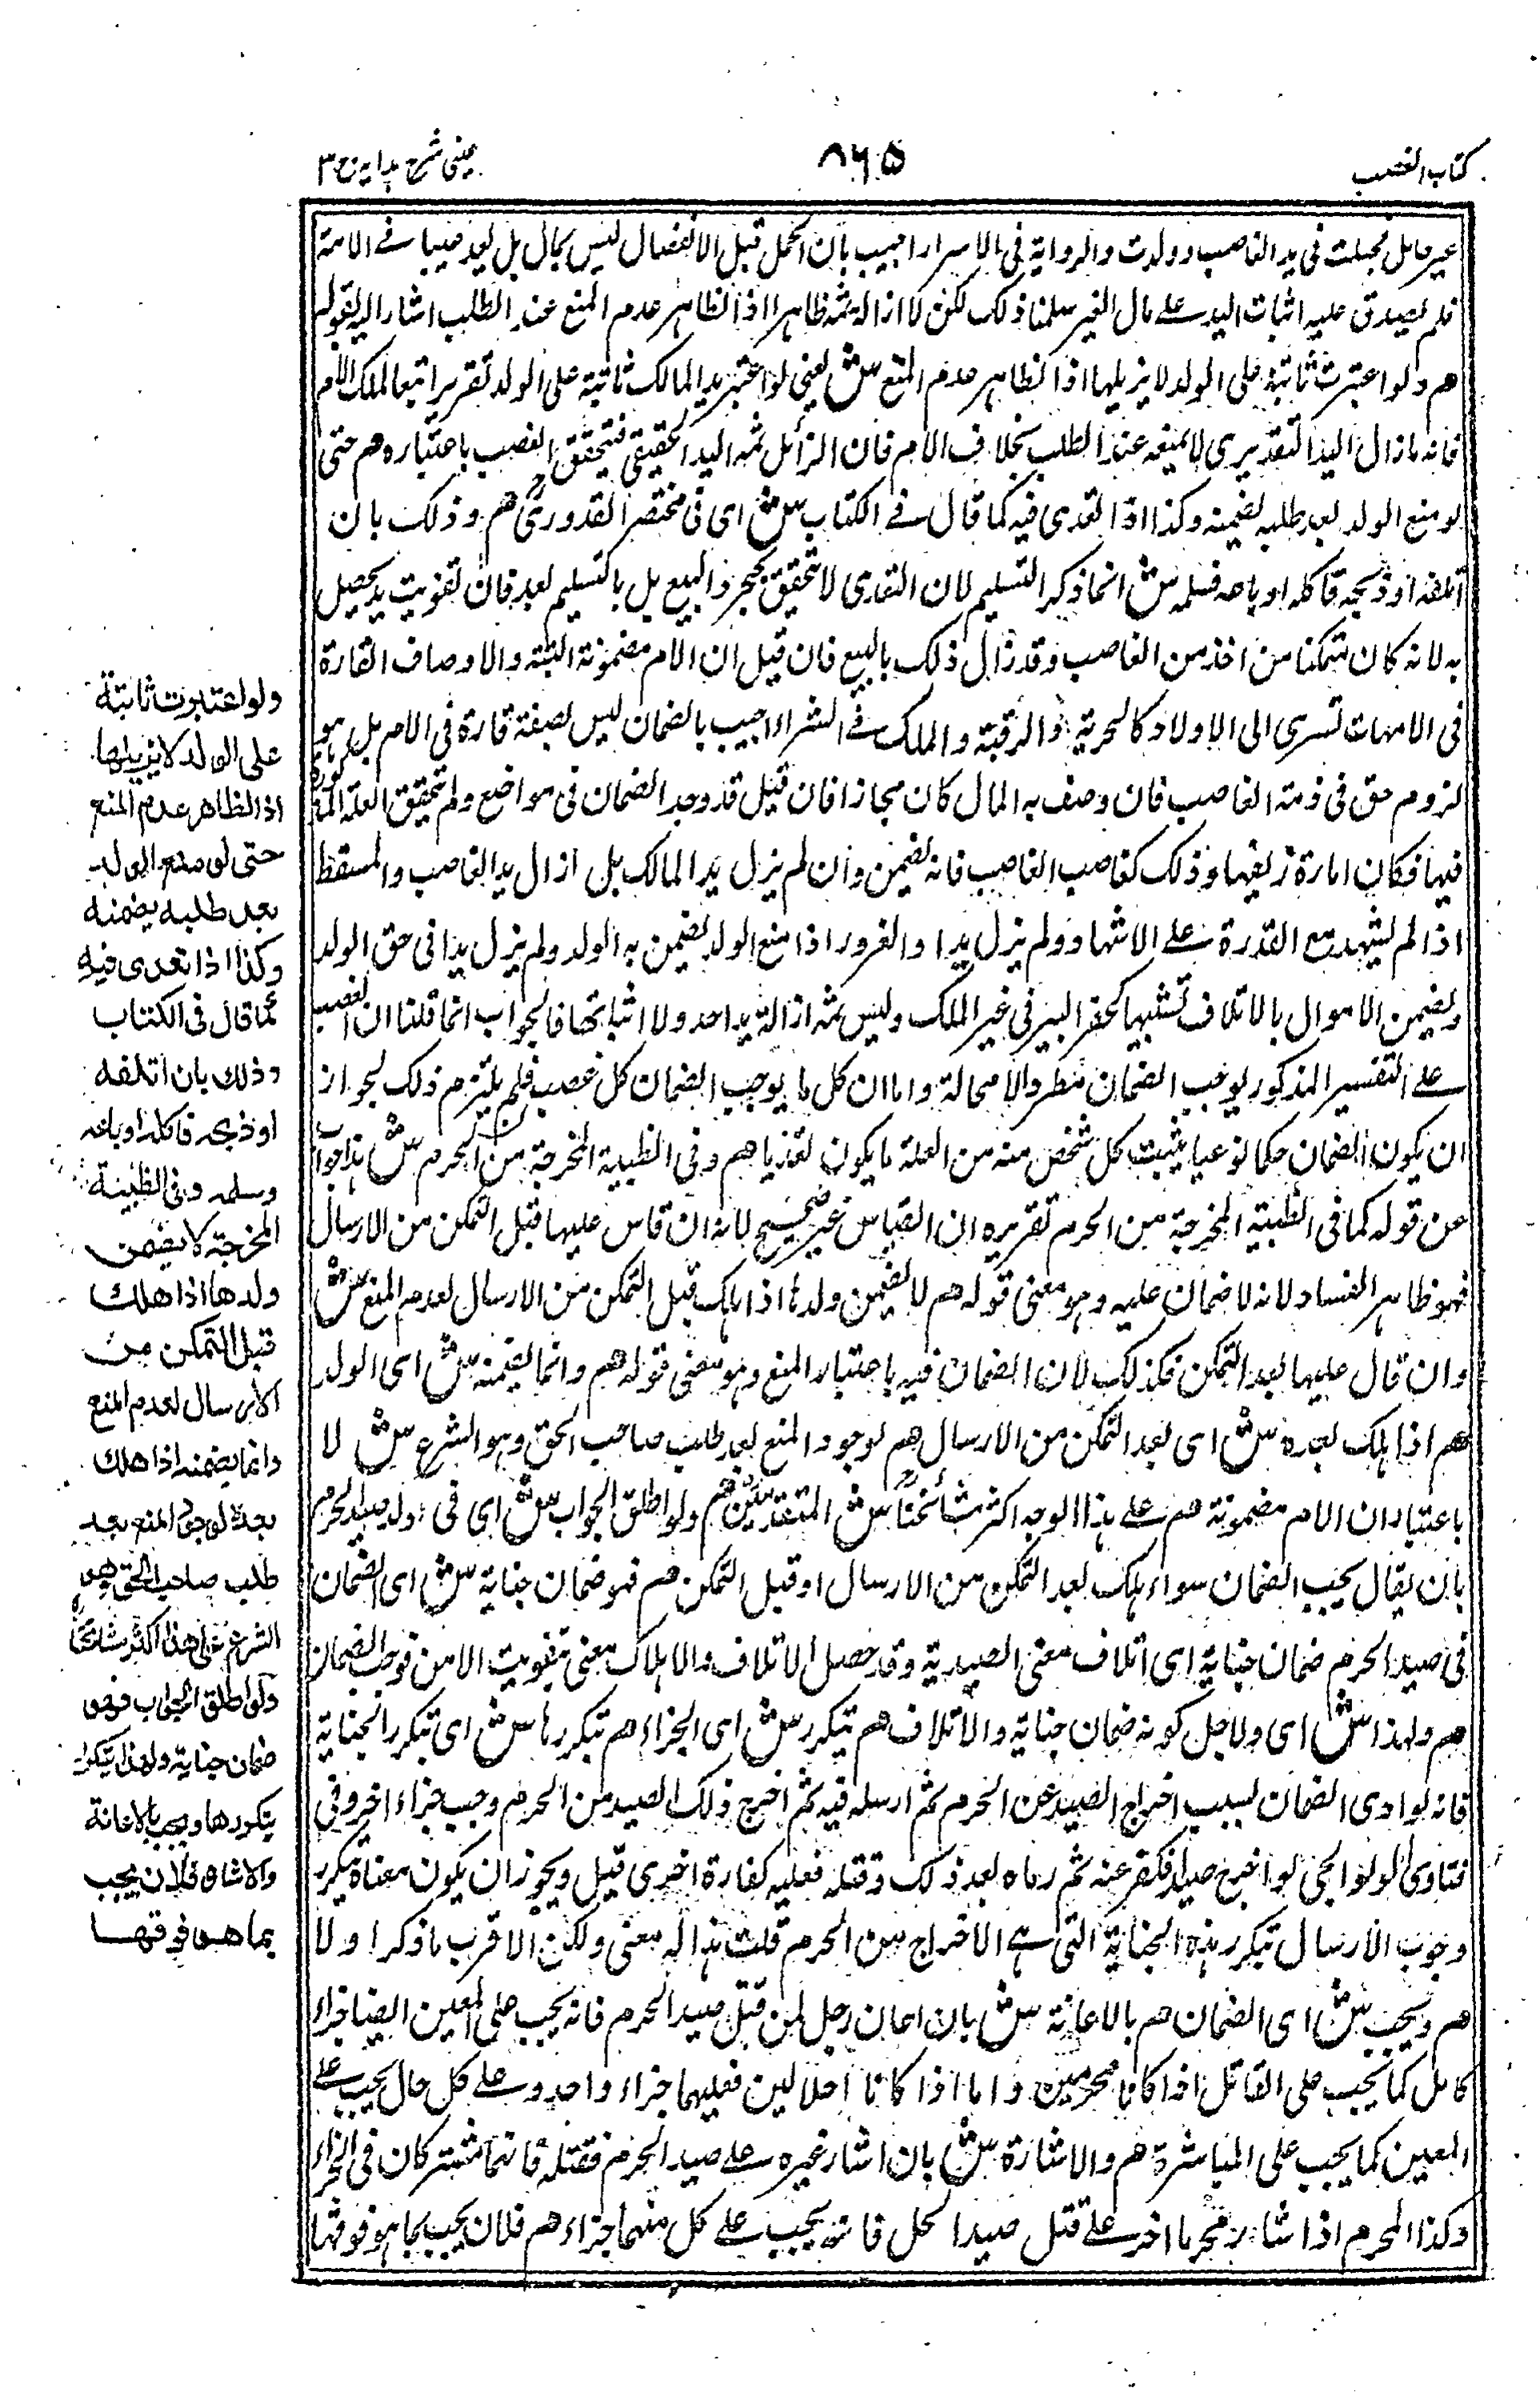 كتاب الغصب
٨٦٥
عينى شرح هدايه ج ٣
غير حامل فحبلت فى يد الغاصب وولدت والرواية فى الاسرار اجيب بان الحمل قبل الانفصال ليس بمال بل يعد عيبا فى الامة
فلم يصدق عليه اثبات اليد على مال الغير سلمنا ذلك لكن لا ازالة ثمه ظاهرا اذ الظاهر عدم المنع عند الطلب اشار اليه بقوله
هم ولو اعتبرت ثابتة على الولد لا يزيلها اذ الظاهر عدم المنع ش يعنى لو اعتبر يد المالك ثابتة على الولد تقريرا تبعا لملك الام
فانه ما زال اليد التقديرى لا يمنعه عند الطلب بخلاف الام فان الزائل ثمه اليد الحقيقى فيتحقق الغصب باعتباره هم حتى
لو منع الولد بعد طلبه يضمنه وكذا اذا تعدى فيه كما قال فى الكتاب ش اى فى مختصر القدورى هم وذلك بان
اتلفه او ذبحه فاكله او باعه فسلمه ش انما ذكر التسليم لان التعدى لا يتحقق بمجرد البيع بل بالتسليم بعده فان تفويت يد يحصل
به لانه كان متمكنا من اخذ من الغاصب وقد زال ذلك بالبيع فان قيل ان الام مضمونة البتة والاوصاف القارة
فى الامهات تسرى الى الاولاد كالحرية والرقبة والملك فى الشراء اجيب بالضمان ليس بصفة قارة فى الام بل هو
لزوم حق فى ذمة الغاصب فان وصف به المال كان مجازا فان قيل قد وجد الضمان فى مواضع ولم تتحقق العلة المذكورة
فيها فكان امارة زيفها وذلك كغاصب الغاصب فانه يضمن وان لم يزل يد المالك بل ازال يد الغاصب والملتقط
اذا لم يشهد مع القدرة على الاشهاد ولم يزل يدا والغرور اذا منع الولد يضمن به الولد ولم يزل يدا فى حق الولد
ويضمن الاموال بالاتلاف تشبيها كحفر البير فى غير الملك وليس ثمه ازالة يد احد ولا اثباتها فالجواب انما قلنا ان الغصب
على التفسير المذكور يوجب الضمان مطردا لا محالة واما ان كل ما يوجب الضمان كل غصب فلم يلتزم ذلك لجواز
ان يكون الضمان حكما نوعيا يثبت كل شخص منه من العلة ما يكون تعديا هم وفى الظبية المخرجة من الحرم ش هذا جواب
عن قوله كما فى الظبية المخرجة من الحرم تقريره ان القياس غير صحيح لانه ان قاس عليها قبل التمكن من الارسال
فهو ظاهر الفساد لانه لا ضمان عليه وهو معنى قوله هم لا يضمن ولدها اذا هلك قبل التمكن من الارسال لعدم المنع ش
وان قال عليها بعد التمكن فكذلك لان الضمان فيه باعتبار المنع وهو معنى قوله هم وانما يضمنه ش اى الولد
هم اذا هلك بعده ش اى بعد التمكن من الارسال هم لوجود المنع بعد طلب صاحب الحق وهو الشرع ش لا
باعتبار ان الام مضمونة هم على هذا الوجه اكثر مشائخنا ش المتقدمين هم ولو اطلق الجواب ش اى فى ولد صيد الحرم
بان يقال يجب الضمان سواء هلك بعد التمكن من الارسال او قبل التمكن هم فهو ضمان جناية ش اى الضمان
فى صيد الحرم ضمان جناية اى اتلاف معنى الصيدية وقد حصل الاتلاف والاهلاك معنى بتفويت الامن فوجب الضمان
هم ولهذا ش اى ولاجل كونه ضمان جناية والاتلاف هم يتكرر ش اى الجزاء هم بتكررها ش اى بتكرر الجناية
فانه لو ادى الضمان بسبب اخراج الصيد عن الحرم ثم ارسله فيه ثم اخرج ذلك الصيد من الحرم وجب جزاء اخر وفى
فتاوى الولوالجى لو اخرج صيدا فكفر عنه ثم رماه بعد ذلك وقتله فعليه كفارة اخرى قيل ويجوز ان يكون معناه يتكرر
وجوب الارسال بتكرر هذه الجناية التى هى الاخراج من الحرم قلت هذا له معنى ولكن الاقرب ما ذكر اولا
هم ويجب ش اى الضمان هم بالاعانة ش بان اعان رجل لمن قتل صيد الحرم فانه يجب على المعين ايضا جزاء
كامل كما يجب على القاتل اذا كانا محرمين واما اذا كانا حلالين فعليهما جزاء واحد وعلى كل حال يجب على
المعين كما يجب على المباشرة هم والاشارة ش بان اشار غيره على صيد الحرم فقتله فانهما مشتركان فى الجزاء
وكذا المحرم اذا اشار محرما اخر على قتل صيد الحل فانه يجب على كل منهما جزاء هم فلان يجب بما هو فوقها
ولو اعتبرت ثابتة
على الولد لا يزيلها
اذ الظاهر عدم المنع
حتى لو منع الولد
بعد طلبه يضمنه
وكذا اذا تعدى فيه
كما قال فى الكتاب
وذلك بان اتلفه
او ذبحه فاكله او باعه
وسلمه وفى الظبية
المخرجة لا يضمن
ولدها اذا هلك
قبل التمكن من
الارسال لعدم المنع
وانما يضمنه اذا هلك
بعده لوجود المنع بعد
طلب صاحب الحق وهو
الشرع على هذا اكثر مشائخنا
ولو اطلق الجواب فهو
ضمان جناية ولهذا يتكرر
بتكررها ويجب بالاعانة
والاشارة فلان يجب
بما هو فوقها